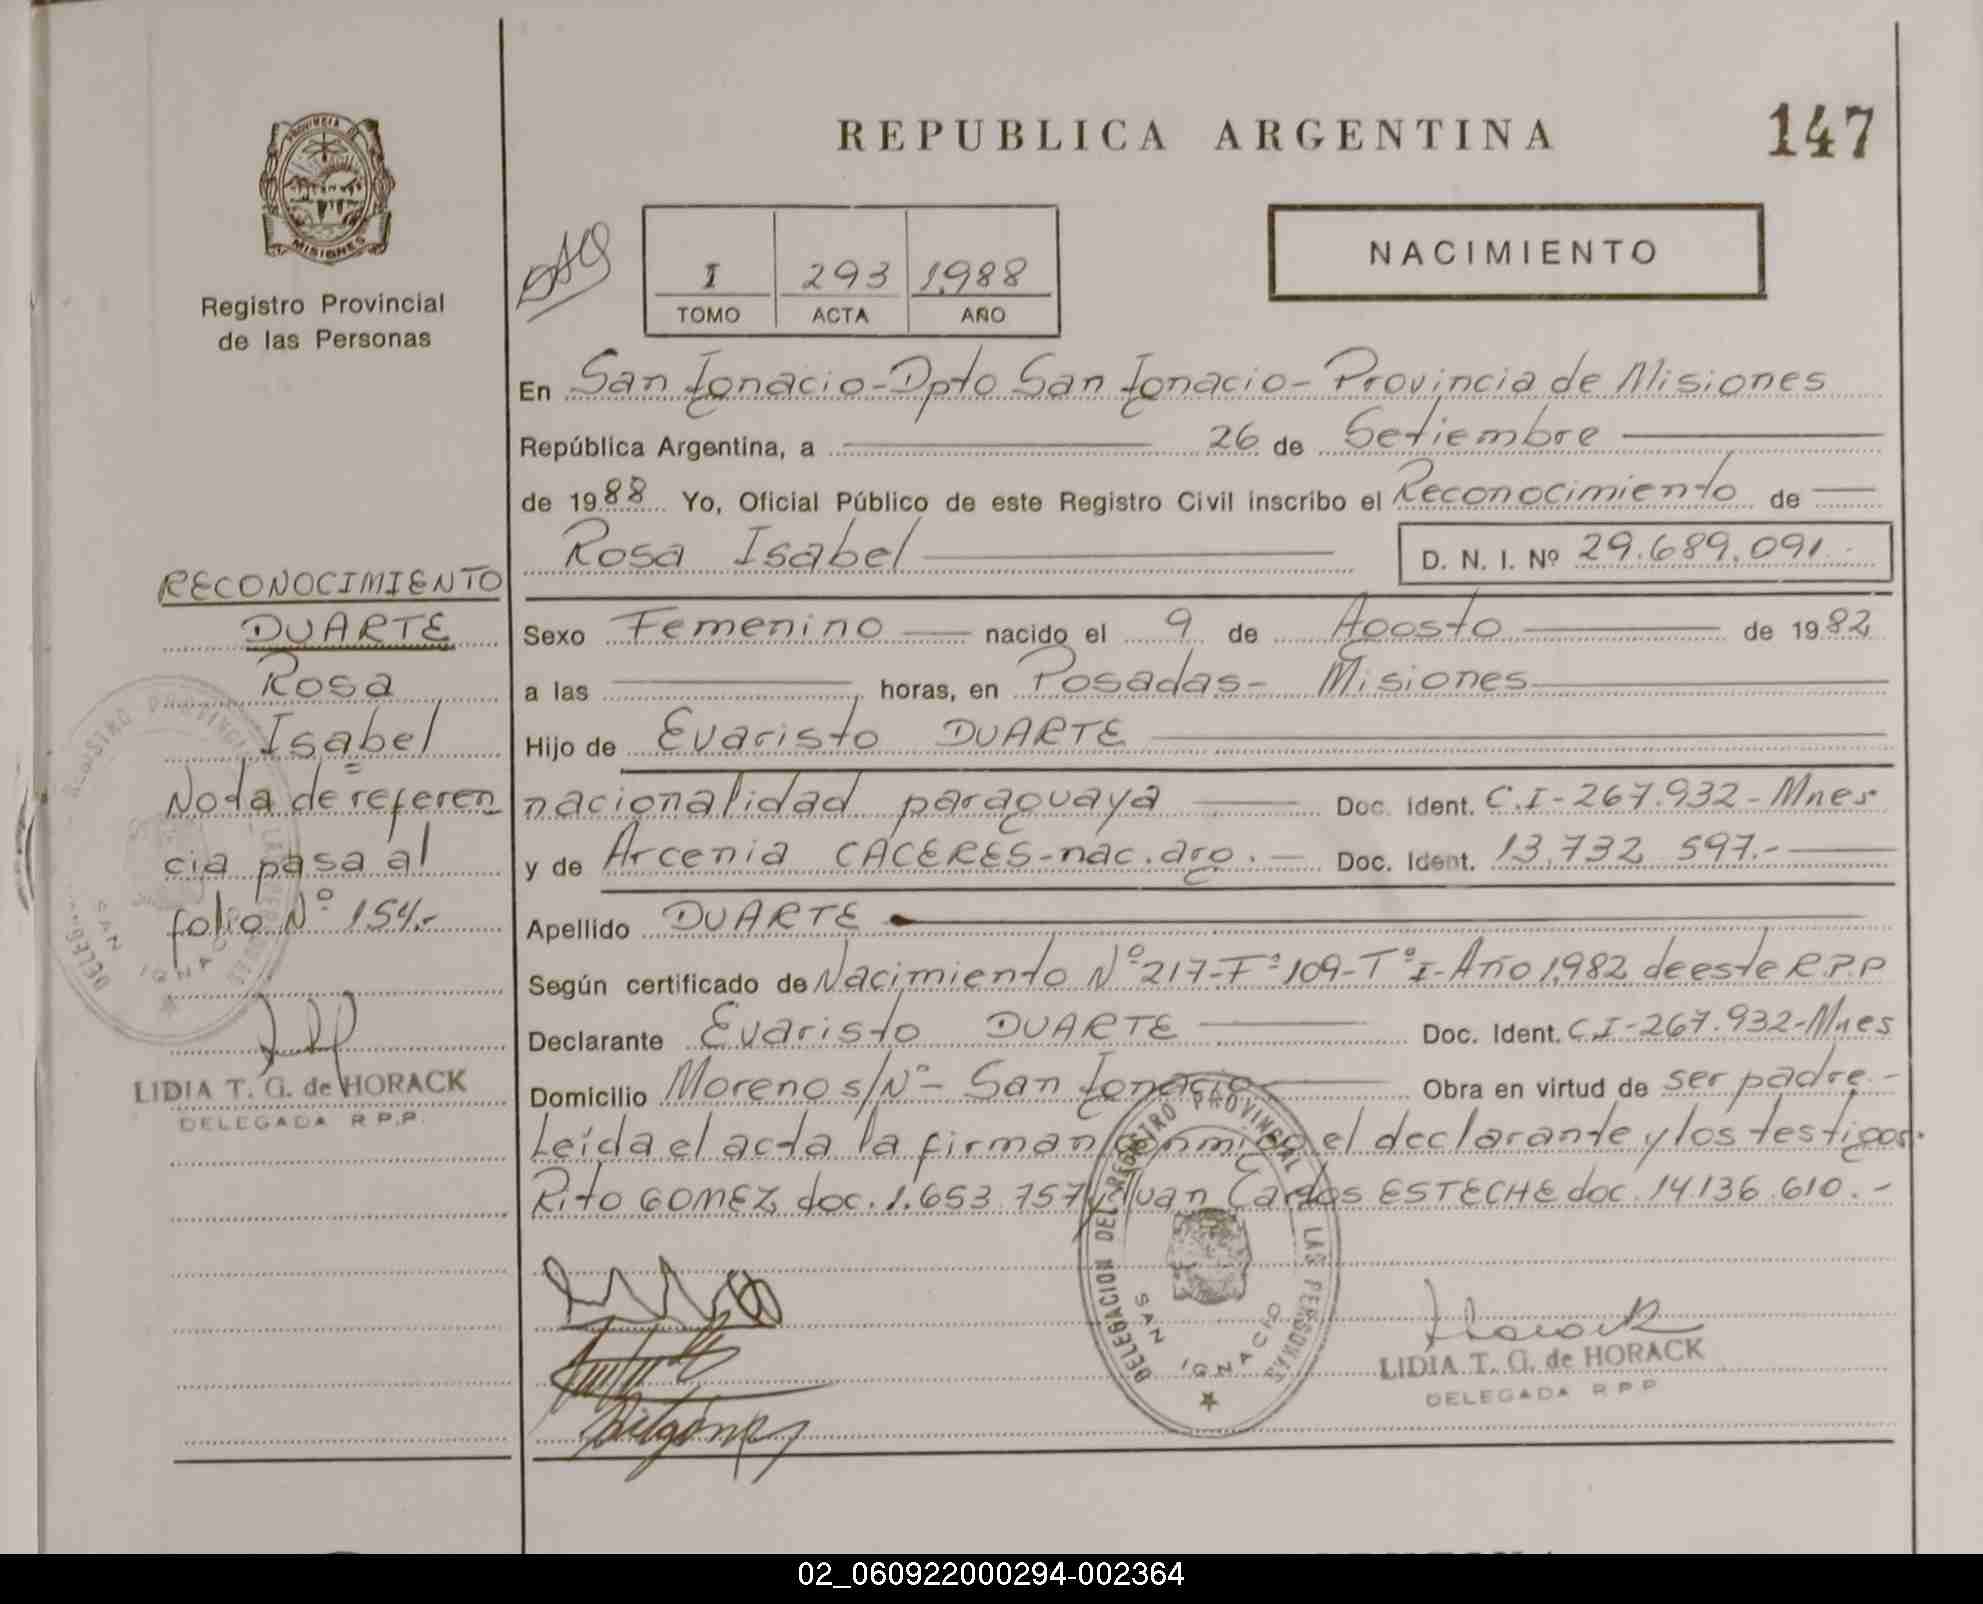 REPUBLICA ARGENTINA
147
PROVINCIA DE
MISIONES
Registro Provincial
de las Personas
I 293 1.988
TOMO ACTA AÑO
NACIMIENTO
En San Ignacio-Dpto San Ignacio- Provincia de Misiones
República Argentina, a 26 de Setiembre
de 1988 Yo, Oficial Público de este Registro Civil inscribo el Reconocimiento de
Rosa Isabel D. N. I. Nº 29.689.091.-
Sexo Femenino nacido el 9 de Agosto de 1982
a las horas, en Posadas- Misiones
Hijo de Evaristo DUARTE
nacionalidad paraguaya Doc. Ident. C.I-267.932-Mnes
y de Arcenia CACERES-nac.arg.- Doc. Ident. 13.732 597.-
Apellido DUARTE
Según certificado de Nacimiento Nº217-Fº109-TºI-Año 1.982 de este R.P.P
Declarante Evaristo DUARTE Doc. Ident. C.I-267.932-Mnes
Domicilio Moreno s/Nº- San Ignacio Obra en virtud de ser padre.-
Leída el acta la firman conmigo el declarante y los testigos.
Rito GOMEZ doc.1.653 757 y Juan Carlos ESTECHE doc.14.136.610.-
RECONOCIMIENTO
DUARTE
Rosa
Isabel
Nota de referen
cia pasa al
folio Nº 154.-
LIDIA T. G. de HORACK
DELEGADA R.P.P.
DELEGACION DEL REGISTRO PROVINCIAL DE LAS PERSONAS
SAN IGNACIO
Horack
LIDIA T. G. de HORACK
DELEGADA R P P
02_060922000294-002364